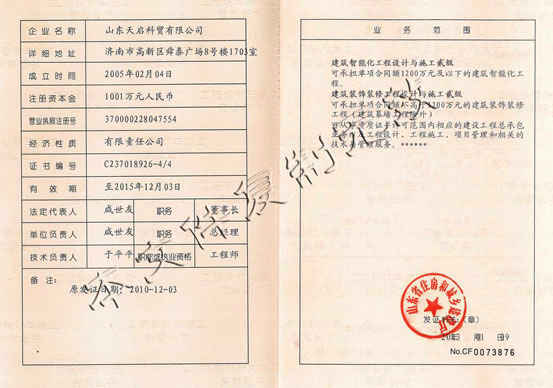 企业名称 山东天启科贸有限公司
详细地址 济南市高新区舜泰广场8号楼1703室
成立时间 2005年02月04日
注册资本金 1001万元人民币
营业执照注册号 370000228047554
经济性质 有限责任公司
证书编号 C237018926-4/4
有效期 至2015年12月03日
法定代表人 咸世友 职务 董事长
单位负责人 咸世友 职务 总经理
技术负责人 于平平 职称或执业资格 工程师
备注:
原发证日期: 2010-12-03
业务范围
建筑智能化工程设计与施工贰级
可承担单项合同额1200万元及以下的建筑智能化工
程。
建筑装饰装修工程设计与施工贰级
可承担单项合同额不高于1200万元的建筑装饰装修
工程(建筑幕墙工程除外)
可从事资质证书许可范围内相应的建设工程总承包
业务以及工程设计、工程施工、项目管理和相关的
技术与管理服务。******
山东省住房和城乡建设厅
发证机关:(章)
No.CF0073876